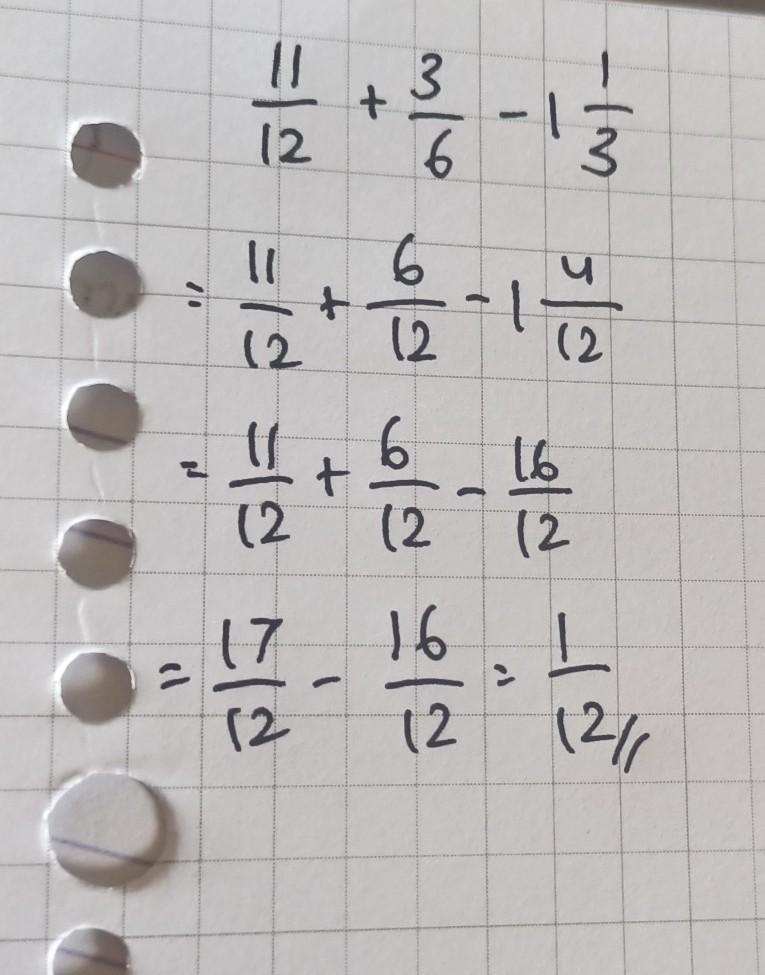 11/12 + 3/6 - 1 1/3
= 11/12 + 6/12 - 1 4/12
= 11/12 + 6/12 - 16/12
= 17/12 - 16/12 = 1/12 //